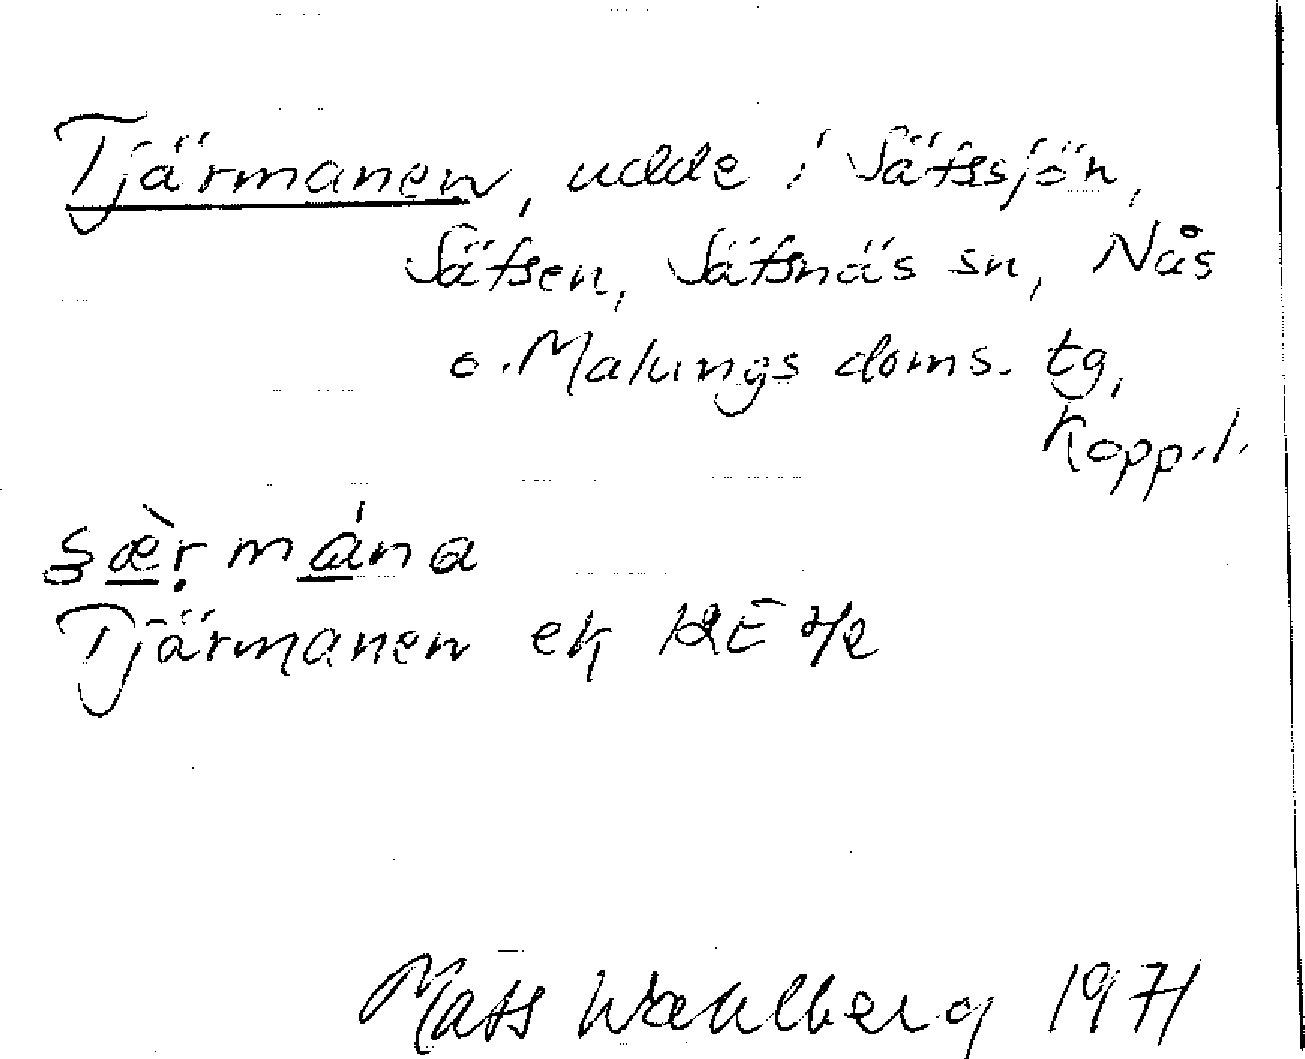 Tjärmanen, udde i Sätssjön,
Sätsen, Sätsnäs sn, Nås
o. Malungs doms. tg,
Kopp. l.
sær̀ mána
Tjärmanen ek
Mats Wahlberg 1971